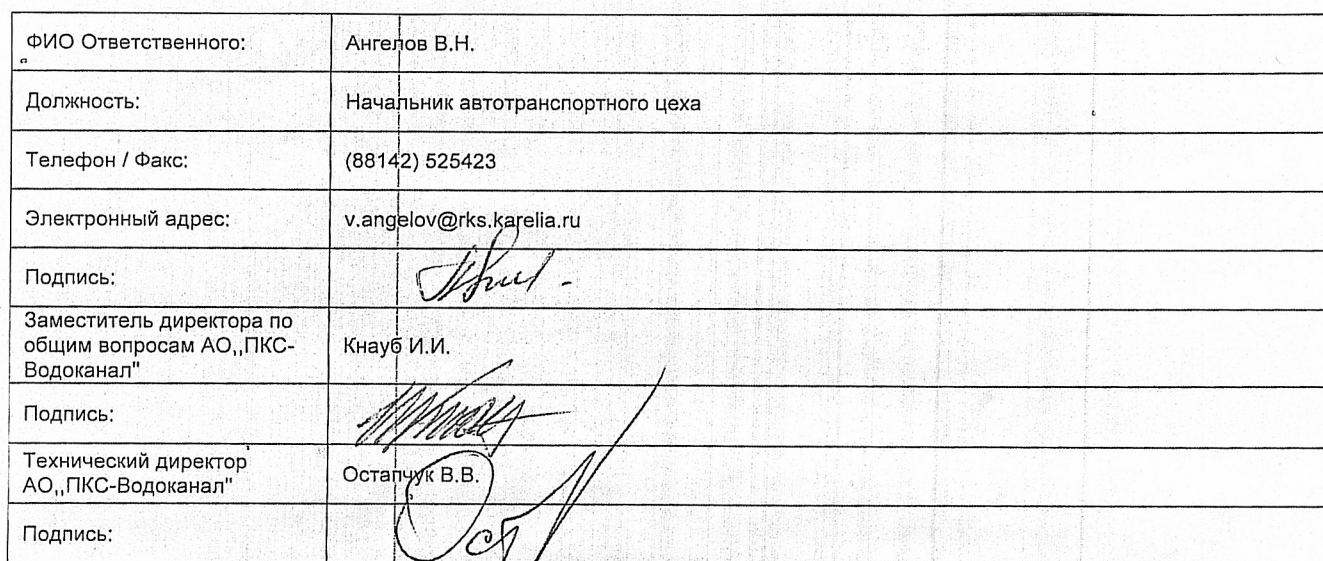 ФИО Ответственного: Ангелов В.Н.
Должность: Начальник автотранспортного цеха
Телефон / Факс: (88142) 525423
Электронный адрес: v.angelov@rks.karelia.ru
Подпись:
Заместитель директора по
общим вопросам АО,,ПКС- Кнауб И.И.
Водоканал"
Подпись:
Технический директор
АО,,ПКС-Водоканал" Остапчук В.В.
Подпись: